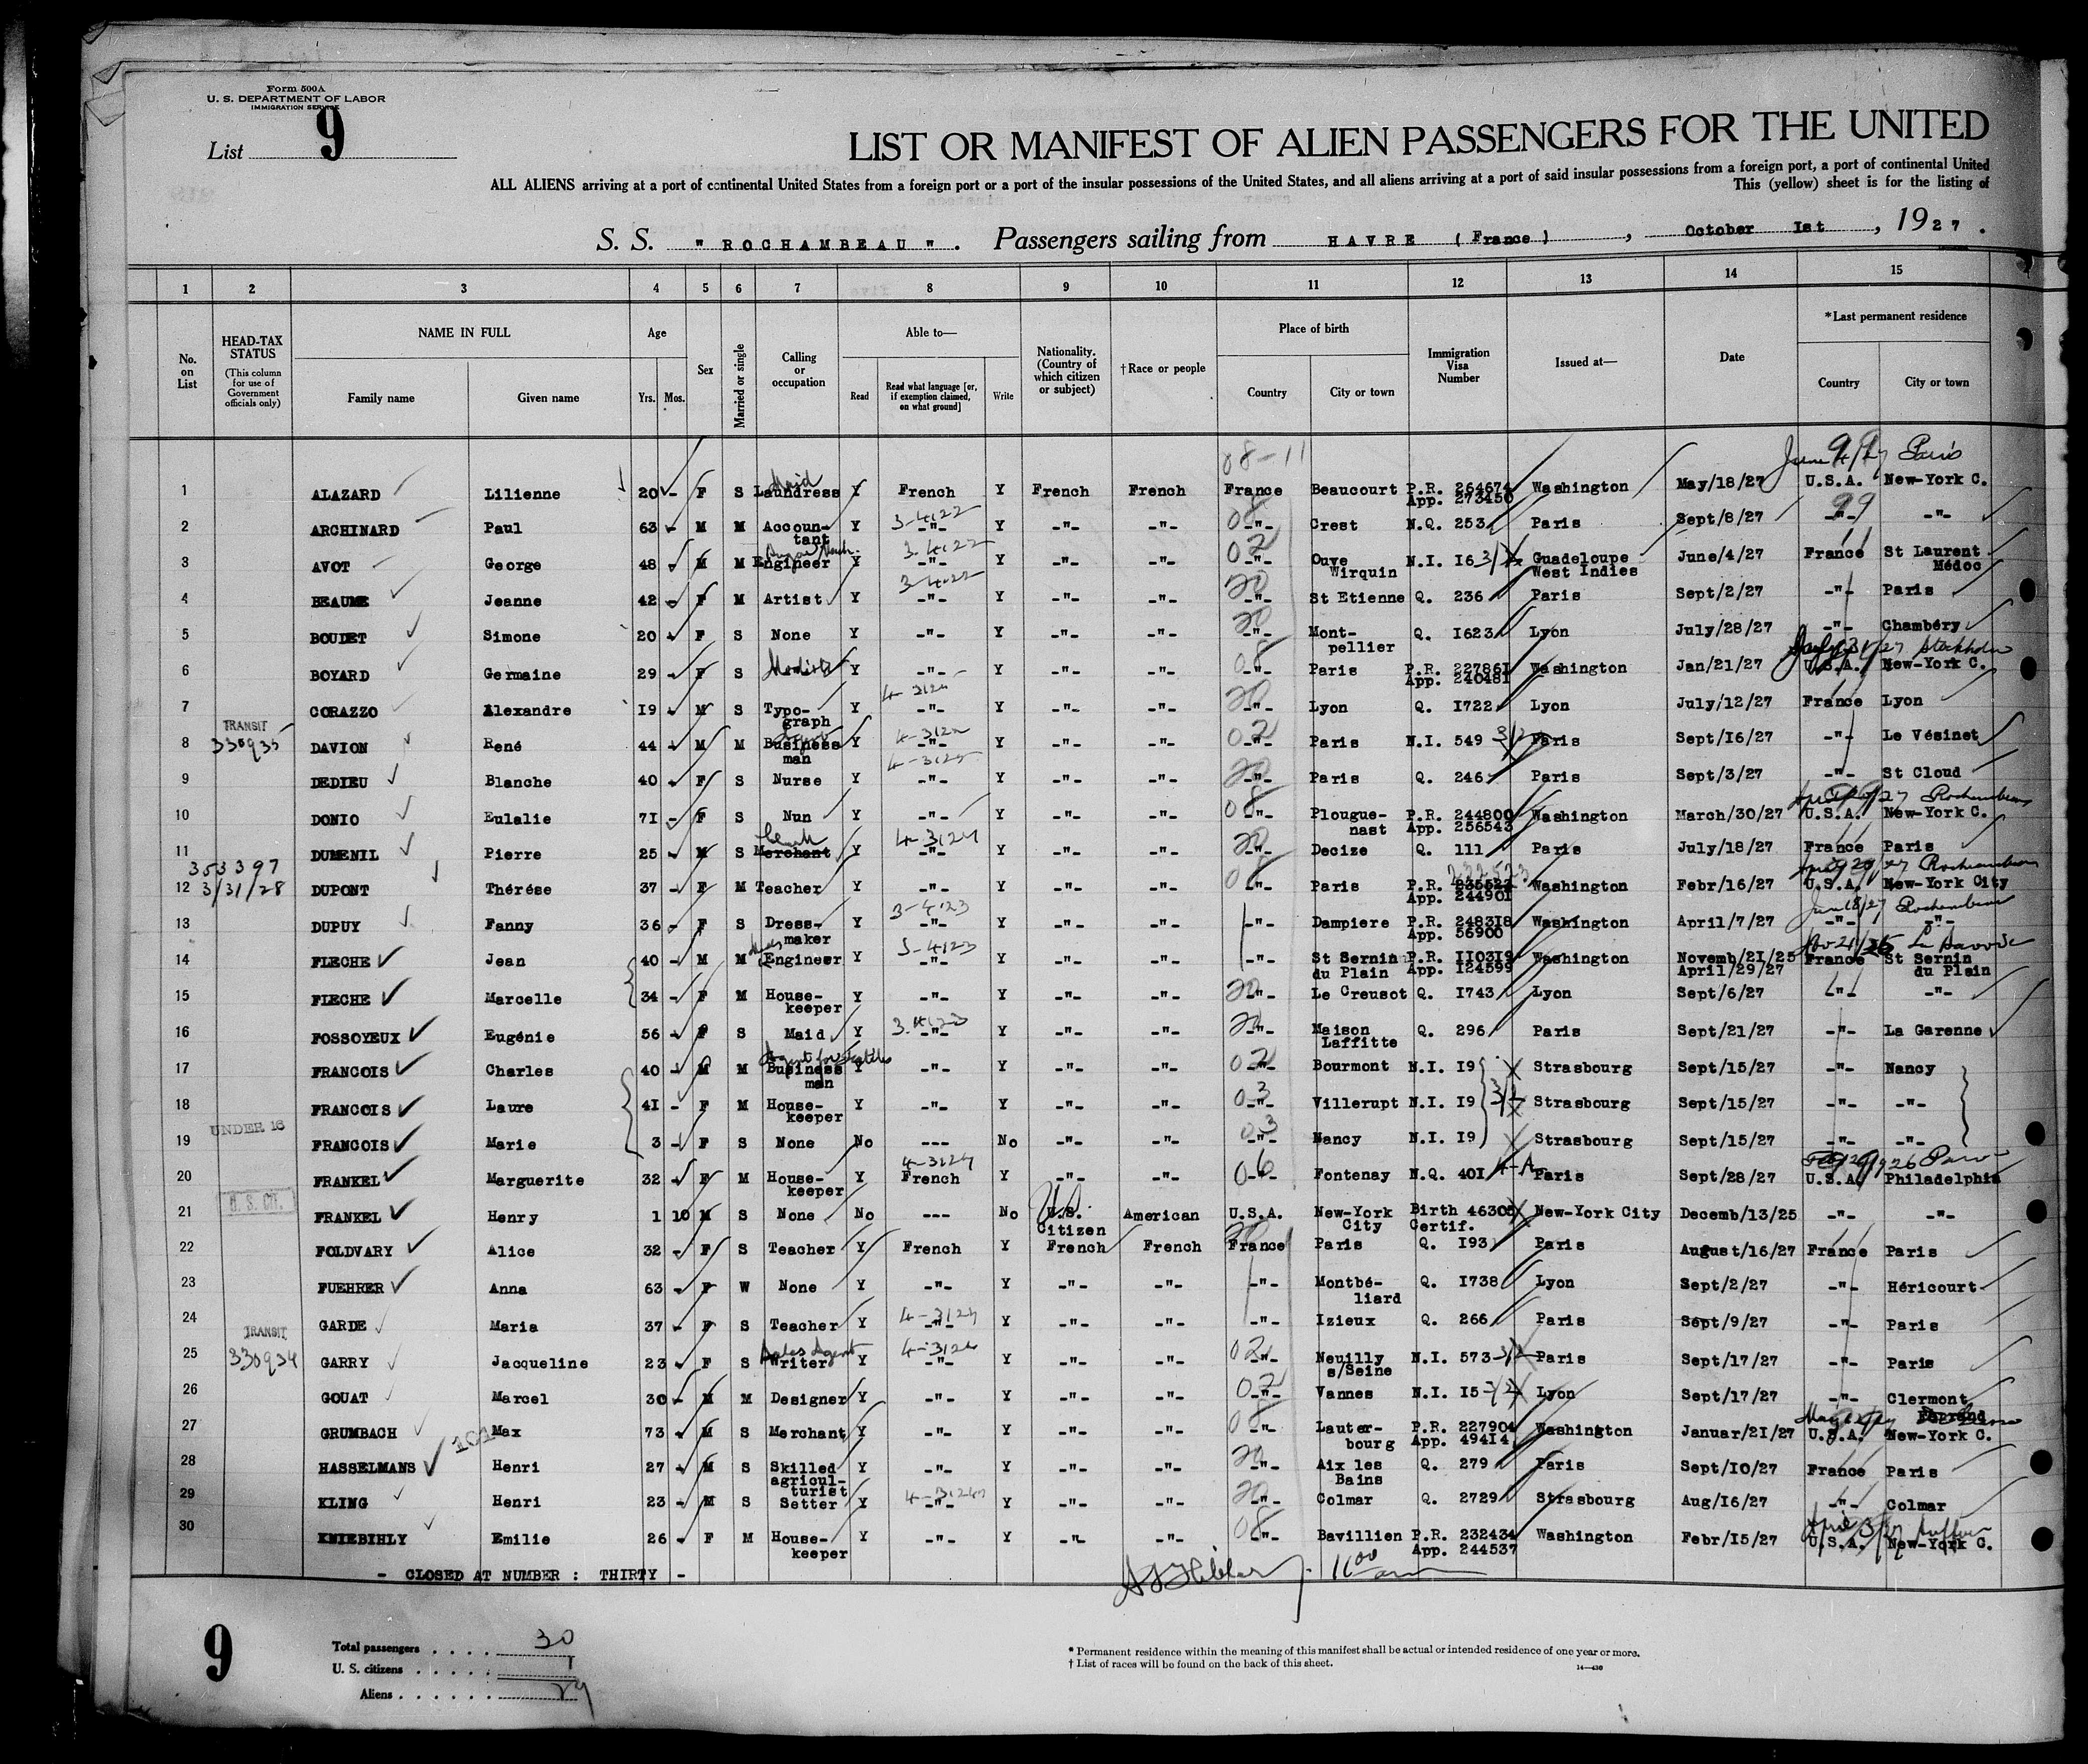 Form 500A
U. S. DEPARTMENT OF LABOR
IMMIGRATION SERVICE
List 9
LIST OR MANIFEST OF ALIEN PASSENGERS FOR THE UNITED
ALL ALIENS arriving at a port of continental United States from a foreign port or a port of the insular possessions of the United States, and all aliens arriving at a port of said insular possessions from a foreign port, a port of continental United
This (yellow) sheet is for the listing of
S. S. " ROCHAMBEAU " . Passengers sailing from HAVRE ( France ) , October Ist , 1927 .
1 2 3 4 5 6 7 8 9 10 11 12 13 14 15
No. on List HEAD-TAX STATUS (This column for use of Government officials only) NAME IN FULL Family name Given name Age Yrs. Mos. Sex Married or single Calling or occupation Able to— Read Read what language [or, if exemption claimed, on what ground] Write Nationality. (Country of which citizen or subject) †Race or people Place of birth Country City or town Immigration Visa Number Issued at— Date *Last permanent residence Country City or town
08-11 Paris
1 ALAZARD Lilienne 20 - F S Laundress Maid Y French Y French French France Beaucourt P.R. 264674 App. 273450 Washington May/18/27 U.S.A. New-York C.
2 ARCHINARD Paul 63 - M M Accoun-tant Y 3-4122 -"- Y -"- -"- 08 -"- Crest N.Q. 253 Paris Sept/8/27 99 -"- -"-
3 AVOT George 48 - M M Engineer Y 3-4122 -"- Y -"- -"- 02 -"- Ouve Wirquin N.I. I6 3/2 Guadeloupe West Indies June/4/27 France St Laurent Médoc
4 BEAUME Jeanne 42 - F M Artist Y 3-4122 -"- Y -"- -"- 20 -"- St Etienne Q. 236 Paris Sept/2/27 -"- Paris
5 BOUDET Simone 20 - F S None Y -"- Y -"- -"- 20 -"- Mont-pellier Q. I623 Lyon July/28/27 -"- Chambéry
6 BOYARD Germaine 29 - F S Modiste Y -"- Y -"- -"- 08 -"- Paris P.R. 227861 App. 240481 Washington Jan/21/27 U.S.A. New-York C.
7 CORAZZO Alexandre I9 - M S Typo-graph Y -"- Y -"- -"- 20 -"- Lyon Q. I722 Lyon July/12/27 France Lyon
TRANSIT 330935
8 DAVION René 44 - M M Business man Y -"- Y -"- -"- 02 -"- Paris N.I. 549 3/2 Paris Sept/I6/27 -"- Le Vésinet
9 DEDIEU Blanche 40 - F S Nurse Y -"- Y -"- -"- 20 -"- Paris Q. 246 Paris Sept/3/27 -"- St Cloud
10 DONIO Eulalie 7I - F S Nun Y -"- Y -"- -"- 08 -"- Plougue-nast P.R. 244800 App. 256543 Washington March/30/27 U.S.A. New-York C. Rochambeau
11 DUMENIL Pierre 25 - M S Merchant Clerk Y 4-3124 -"- Y -"- -"- 20 -"- Decize Q. 111 Paris July/18/27 France Paris
353397 3/31/28
12 DUPONT Thérése 37 - F M Teacher Y -"- Y -"- -"- 08 -"- Paris P.R. 235522 App. 244901 Washington Febr/16/27 U.S.A. New-York City Rochambeau
13 DUPUY Fanny 36 - F S Dress-maker Y 3-4123 -"- Y -"- -"- -"- Dampiere P.R. 248318 App. 56900 Washington April/7/27 -"- -"- Rochambeau
14 FLECHE Jean 40 - M M Engineer Y 3-4123 -"- Y -"- -"- -"- St Sernin du Plain P.R. II03I9 App. I24599 Washington Novemb/21/25 April/29/27 France St Sernin du Plain La Savoie
15 FLECHE Marcelle 34 - F M House-keeper Y -"- Y -"- -"- 20 -"- Le Creusot Q. I743 Lyon Sept/6/27 -"- -"-
16 FOSSOYEUX Eugénie 56 - F S Maid Y 3-4123 -"- Y -"- -"- 20 -"- Maison Laffitte Q. 296 Paris Sept/21/27 -"- La Garenne
17 FRANCOIS Charles 40 - M M Business man Y -"- Y -"- -"- 02 -"- Bourmont N.I. I9 Strasbourg Sept/15/27 -"- Nancy
18 FRANCOIS Laure 4I - F M House-keeper Y -"- Y -"- -"- 03 -"- Villerupt N.I. I9 3/2 Strasbourg Sept/15/27 -"- -"-
UNDER 16
19 FRANCOIS Marie 3 - F S None No --- No -"- -"- 03 -"- Nancy N.I. I9 Strasbourg Sept/15/27 -"- -"-
20 FRANKEL Marguerite 32 - F M House-keeper Y 4-3124 French Y -"- -"- 06 -"- Fontenay N.Q. 40I 4-A Paris Sept/28/27 U.S.A. Philadelphia
U. S. CIT.
21 FRANKEL Henry 1 10 M S None No --- No U.S. Citizen American U.S.A. New-York City Birth 46305 Certif. New-York City Decemb/13/25 -"- -"-
22 FOLDVARY Alice 32 - F S Teacher Y French Y French French France Paris Q. I93 Paris August/16/27 France Paris
23 FUEHRER Anna 63 - F W None Y -"- Y -"- -"- -"- Montbé-liard Q. I738 Lyon Sept/2/27 -"- Héricourt
24 GARDE Maria 37 - F S Teacher Y 4-3124 -"- Y -"- -"- -"- Izieux Q. 266 Paris Sept/9/27 -"- Paris
TRANSIT 330934
25 GARRY Jacqueline 23 - F S Writer Sales Agent Y 4-3124 -"- Y -"- -"- 02 -"- Neuilly s/Seine N.I. 573 3/2 Paris Sept/17/27 -"- Paris
26 GOUAT Marcel 30 - M M Designer Y -"- Y -"- -"- 02 -"- Vannes N.I. I5 3/2 Lyon Sept/17/27 -"- Clermont Ferrand
27 GRUMBACH Max 73 - M S Merchant Y -"- Y -"- -"- 08 -"- Lauter-bourg P.R. 227904 App. 494I4 Washington Januar/21/27 U.S.A. New-York C.
28 HASSELMANS Henri 27 - M S Skilled agricul-turist Y -"- Y -"- -"- 20 -"- Aix les Bains Q. 279 Paris Sept/I0/27 France Paris
29 KLING Henri 23 - M S Setter Y -"- Y -"- -"- 20 -"- Colmar Q. 2729 Strasbourg Aug/I6/27 -"- Colmar
30 KNIEBIHLY Emilie 26 - F M House-keeper Y -"- Y -"- -"- 08 -"- Bavillien P.R. 232434 App. 244537 Washington Febr/15/27 U.S.A. New-York C.
- CLOSED AT NUMBER : THIRTY -
11 00 am
9
Total passengers . . . . 30
U. S. citizens . . . . . 1
Aliens . . . . . . 29
* Permanent residence within the meaning of this manifest shall be actual or intended residence of one year or more.
† List of races will be found on the back of this sheet.
14—430